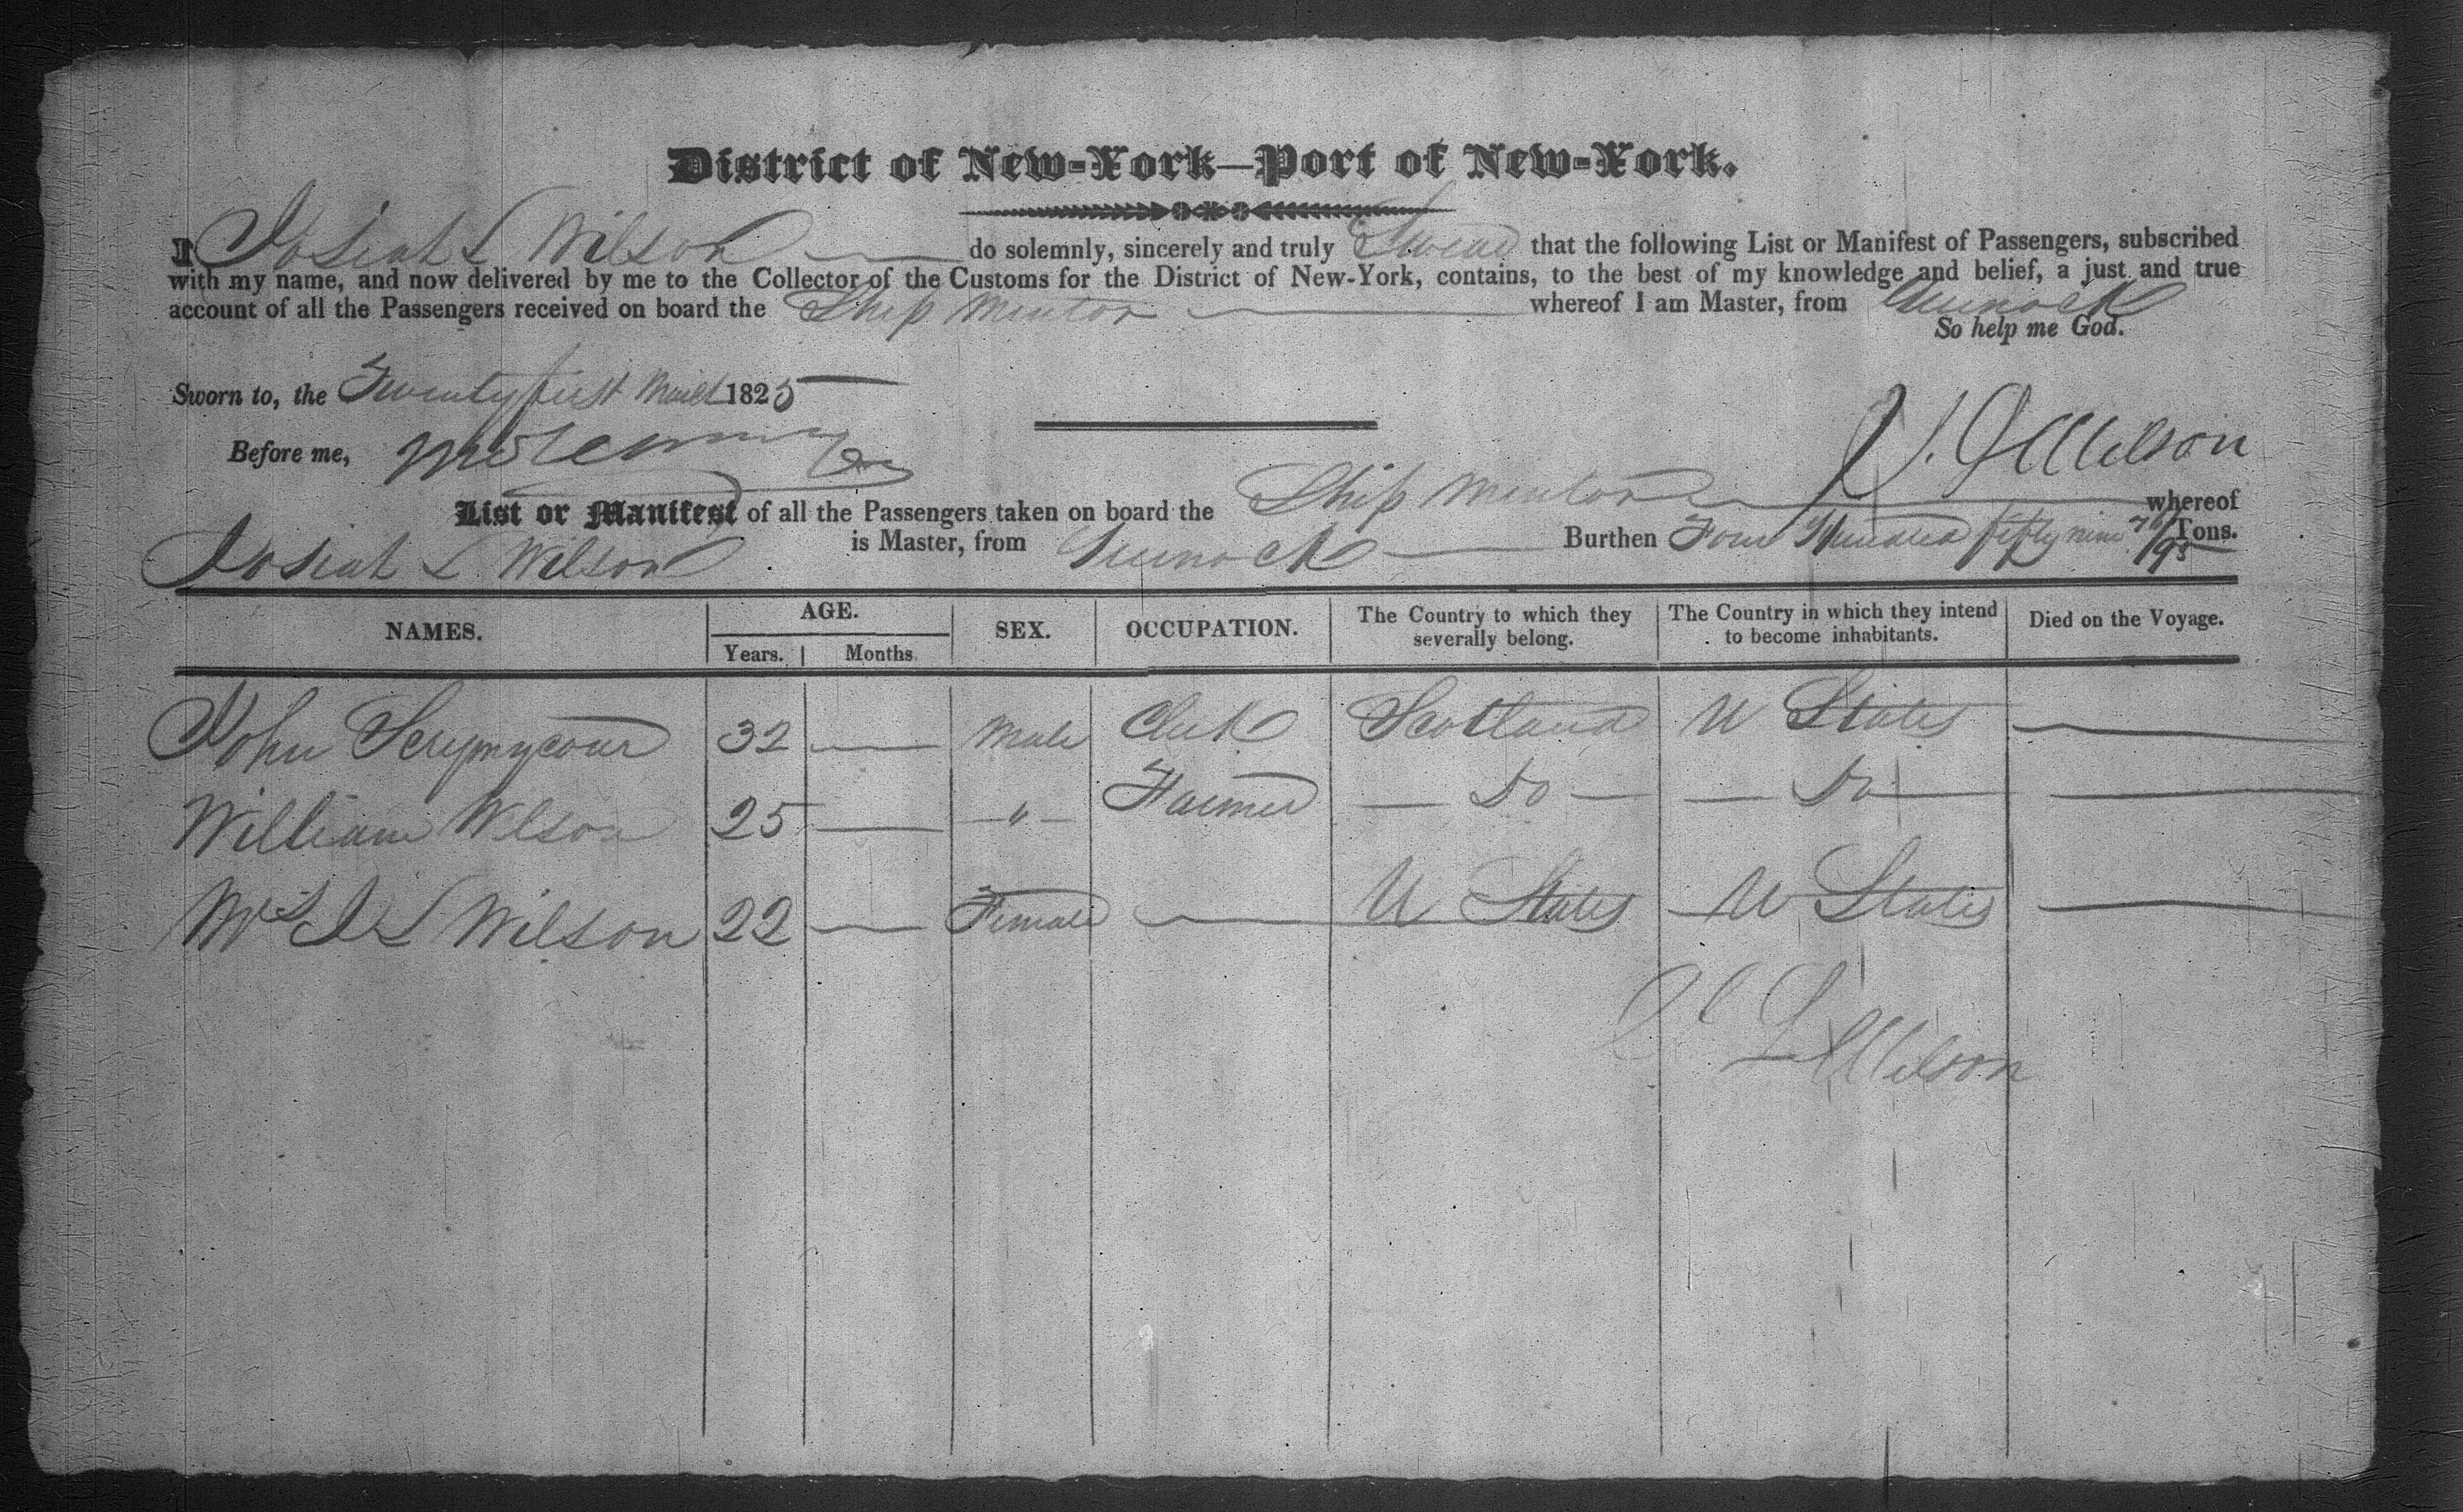 District of New-York—Port of New-York.
I Josiah L Wilson do solemnly, sincerely and truly Swear that the following List or Manifest of Passengers, subscribed
with my name, and now delivered by me to the Collector of the Customs for the District of New-York, contains, to the best of my knowledge and belief, a just and true
account of all the Passengers received on board the Ship Mentor whereof I am Master, from Greenock
So help me God.
Sworn to, the Twenty first March 1825
J L Wilson
Before me,
List or Manifest of all the Passengers taken on board the Ship Mentor whereof
Josiah L Wilson is Master, from Greenock Burthen Four Hundred fifty nine /95 Tons.
NAMES. AGE. SEX. OCCUPATION. The Country to which they severally belong. The Country in which they intend to become inhabitants. Died on the Voyage.
Years. Months.
John Scrymgeour 32 — Male Clerk Scotland U States —
William Wilson 25 — " Farmer — Do — — Do — —
Mrs J L Wilson 22 — Female — U States — U States —
J L Wilson